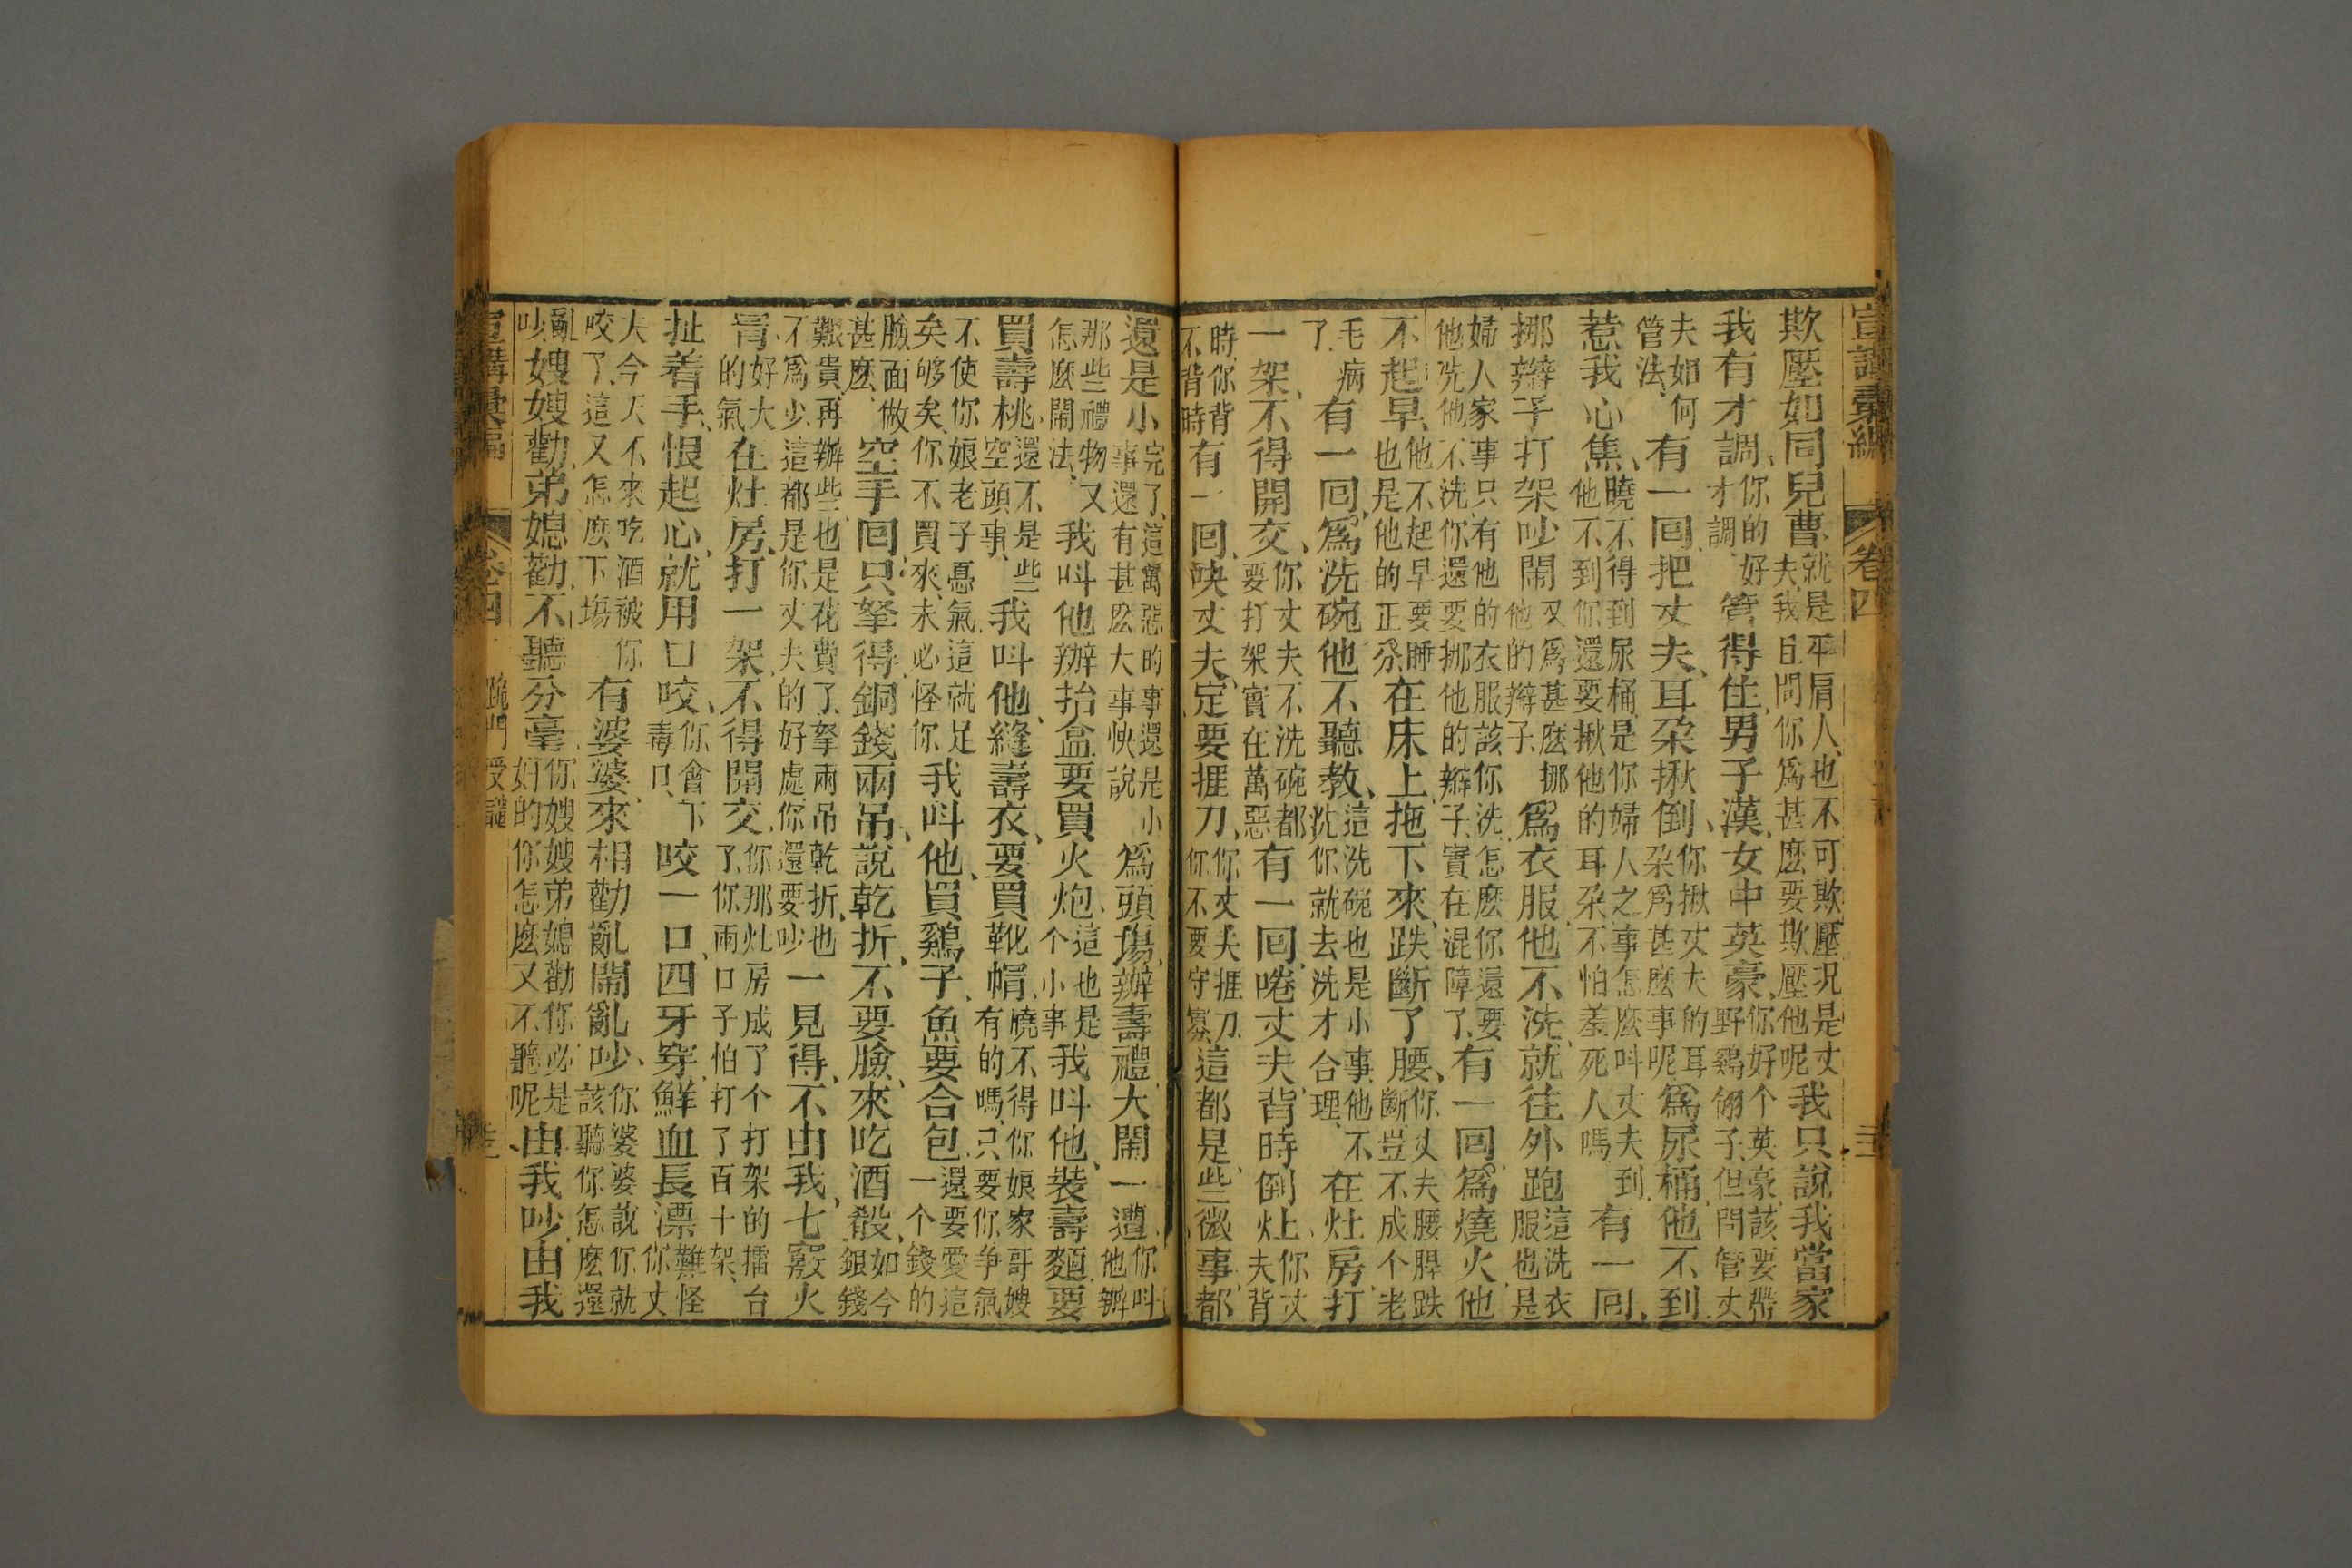 宣講彙編 卷四 三
欺壓如同兒曹就是平肩人也不可欺壓況是丈夫我且問你爲甚麽要欺壓他呢我只說我當家
我有才調你的好才調管得住男子漢女中英豪你好个英豪該要帶野鷄翎子但問管丈
夫如何管法有一回把丈夫耳朶揪倒你揪丈夫的耳朶爲甚麽事呢爲尿桶他不到
惹我心焦曉不得到尿桶是你婦人之事怎麽呌丈夫到他不到你還要揪他的耳朶不怕羞死人嗎有一囘
挪辮子打架吵鬧又爲甚麽挪他的辮子爲衣服他不洗就往外跑這洗衣服也是
婦人家事只有他的衣服該你洗怎麽你還要他洗他不洗你還要挪他的辮子實在混障了有一囘爲燒火他
不起早他不起早要睡也是他的正分在床上拖下來跌斷了腰你丈夫腰脾跌斷豈不成个老
毛病了有一囘爲洗碗他不聽教這洗碗也是小事他不洗你就去洗才合理在灶房打
一架不得開交你丈夫不洗碗都要打架實在萬惡有一回咾丈夫背時倒灶你丈夫背
時你背不背時有一回咉丈夫定要捱刀你丈夫捱刀你不要守寡這都是些微事都
還是小完了這寫惡的事還是小事還有甚麽大事快說爲頭塲辦壽禮大鬧一遭你呌他辦
那些禮物又怎麽鬧法我呌他辦抬盒要買火炮這也是个小事我呌他裝壽麵要
買壽桃還不是些空頭事我呌他縫壽衣要買靴帽曉不得你娘家哥嫂有的嗎只要你爭氣
不使你娘老子慪氣這就足矣够矣你不買來未必怪你我呌他買鷄子魚要合包還要愛這一个錢的
臉面做甚麽空手囘只拏得銅錢兩吊說乾折不要臉來吃酒殽如今銀錢
艱貴再辦些也是花費了拏兩吊乾折也不爲少這都是你丈夫的好處你還要吵一見得不由我七竅火
冐好大的氣在灶房打一架不得開交你那灶房成了个打架的擂台了你兩口子怕打了百十架
扯着手恨起心就用口咬你會下毒口咬一口四牙穿鮮血長漂難怪你丈
夫今天不來吃酒被你咬了這又怎麽下塲有婆婆來相勸亂鬧亂吵你婆婆說你就該聽你怎麽還
亂吵嫂嫂勸弟媳勸不聽分毫你嫂嫂弟媳勸你必是好的你怎麽又不聽呢由我吵由我
宣講彙編 卷四 跪門受譴